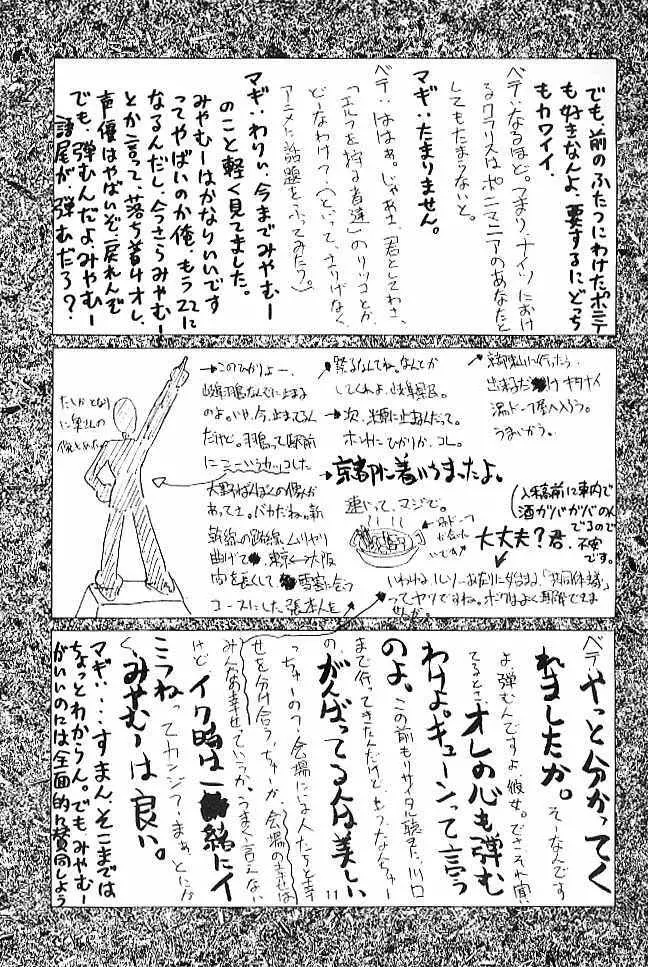 でも、前のふたつにわけたポニテ
も好きなんよ、要するにどっち
もカワイイ。
ベテ：なるほど。つまり、ナイツにおけ
るクラリスはポニマニアのあなたと
してもたまらないと。
マギ：たまりません。
ベテ：ははぁ。じゃあさ、君としてわさ、
「エルフを狩る者達」のリツコとか、
どーなわけ？(といって、さりげなく
アニメに話題をふってみたり。)
マギ：わりい、今までみやむー
のこと軽く見てました。
みやむーはかなりいいです
ってやばいのか俺、もう22に
なるんだし、今さらみやむー
とか言って、落ち着けオレ、
声優はやばいぞ、戻れんぞ
でも、弾むんだよみやむー
語尾が弾むだろ？
京都に行ったら、
うまいかう。
→このひかりよー、
岐阜羽島なんぞに止まる
のよ。いや、今、止まってるん
だけど。羽島って駅前
にニューッとカッコした
大野ばんぼくの像が
あってさ。バカだね。新
幹線の路線、ムリヤリ
曲げて 東京〜大阪
間を長くして 雪害に会う
コースにした張本人を
たしかとなり
に奥さんの
像もあった
してくれよ、岐阜県民。
→次、米原に止まるんだって。
ホントにひかりか、コレ。
→京都に着いちまったよ。
速いって、マジで。
(入稿前に車内で
酒ガバガバのん
でるので
不安
です。
大丈夫？君、
ベテ：やっと分かってく
れましたか。そーなんです
よ、弾むんですよ、彼女。でさ、それ聞い
てるとさ、オレの心も弾む
わけよ。キューンって言う
のよ、この前もリサイタル聴きに川口
まで行ってきたんだけど、もうなんちゅー
の、がんばってる人は美しい
っちゅーの？会場にいる人たちと幸
せを分け合う、ちゅーか、会場の幸せは
みんなの幸せっていうか、うまく言えない
けど、イク時は一緒にイ
こうねってカンジ？まぁ、とにか
く、みやむーは良い。
マギ：・・・すまん、そこまでは
ちょっとわからん。でもみやむー
がいいのには全面的に賛同しよう